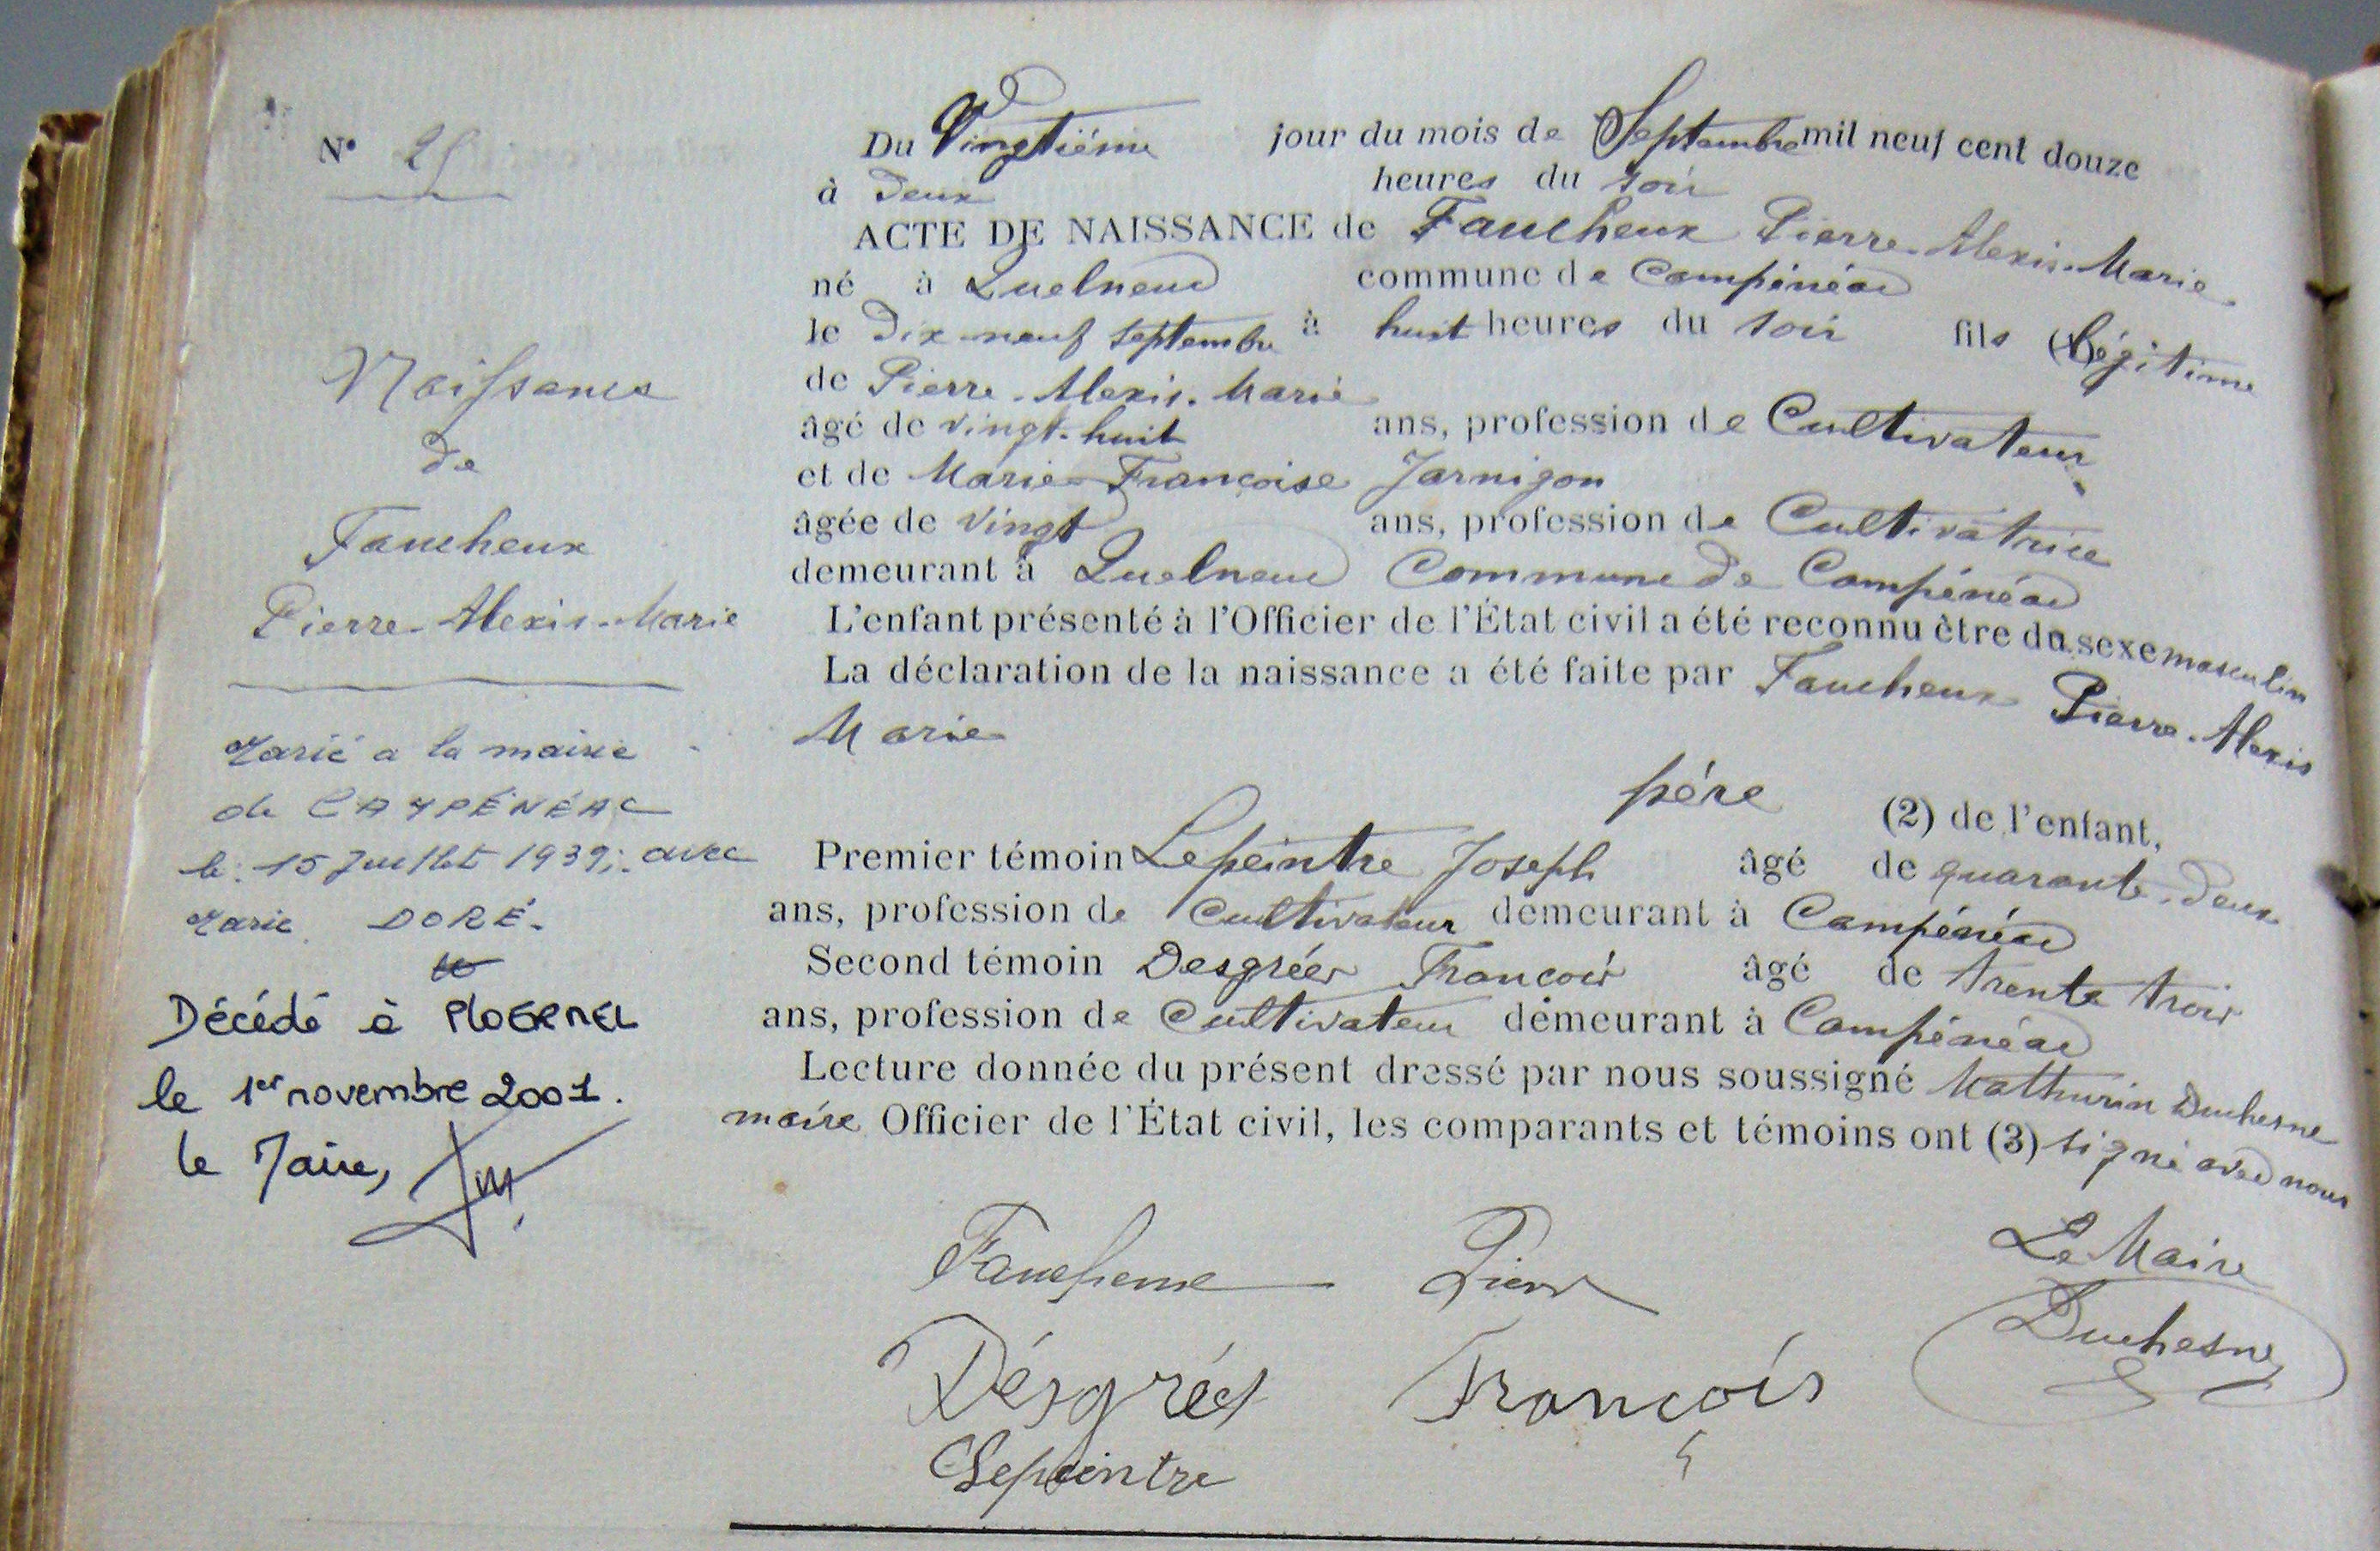 N° 25
Naissance
de
Faucheux
Pierre-Alexis-Marie
Marié a la mairie
de CAMPÉNÉAC
le 15 Juillet 1939, avec
Marie DORÉ.
Décédé à PLOERMEL
le 1er novembre 2001.
le Maire,
Du Vingtième jour du mois de Septembre mil neuf cent douze
à deux heures du soir
ACTE DE NAISSANCE de Faucheux Pierre-Alexis-Marie
né à Quelneuc commune de Campénéac
le dix-neuf septembre à huit heures du soir fils légitime
de Pierre-Alexis-Marie
âgé de vingt-huit ans, profession de Cultivateur
et de Marie-Françoise Jarnigon
âgée de vingt ans, profession de Cultivatrice
demeurant à Quelneuc Commune de Campénéac
L'enfant présenté à l'Officier de l'État civil a été reconnu être du sexe masculin
La déclaration de la naissance a été faite par Faucheux Pierre-Alexis
Marie
pére (2) de l'enfant,
Premier témoin Lepeintre Joseph âgé de quarante-deux
ans, profession de Cultivateur demeurant à Campénéac
Second témoin Desgrées Francois âgé de trente trois
ans, profession de Cultivateur demeurant à Campénéac
Lecture donnée du présent dressé par nous soussigné Mathurin Duchesne
maire Officier de l'État civil, les comparants et témoins ont (3) signé avec nous
Faucheux Pierre
Le Maire
Duchesne
Désgrées François
Lepeintre